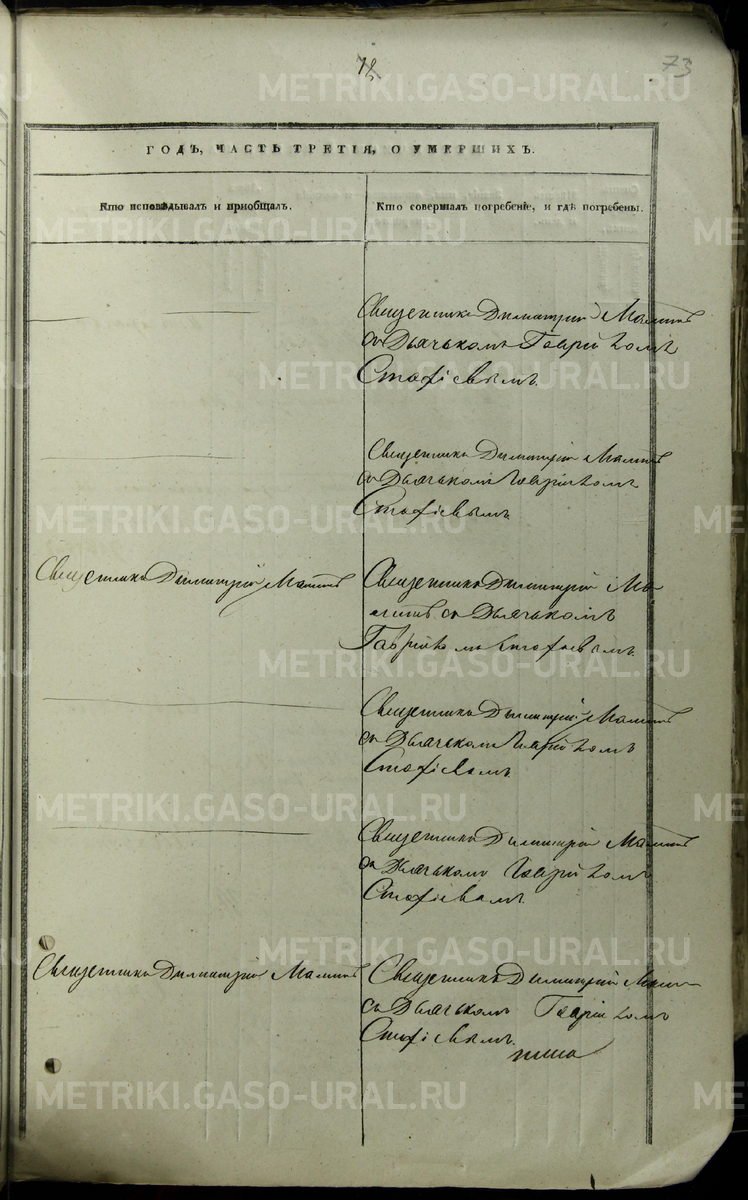 72
73
METRIKI.GASO-URAL.RU
ГОДЪ, ЧАСТЬ ТРЕТІЯ, О УМЕРШИХЪ.
Кто исповѣдывалъ и пріобщалъ.
Кто совершалъ погребеніе, и гдѣ погребены.
Священникъ Димитрій Маминъ
съ Дьячькомъ Гавріиломъ
Стафіевымъ.
Священникъ Димитрій Маминъ
съ Дьячькомъ Гавріиломъ
Стафіевымъ.
Священникъ Димитрій Маминъ
Священникъ Димитрій Ма-
минъ съ Дьячькомъ
Гавріиломъ Стафіевымъ.
Священникъ Димитрій Маминъ
съ Дьячькомъ Гавріиломъ
Стафіевымъ.
Священникъ Димитрій Маминъ
съ Дьячькомъ Гавріиломъ
Стафіевымъ.
Священникъ Димитрій Маминъ
Священникъ Димитрій Мами
съ Дьячькомъ Гавріиломъ
Стафіевымъ.